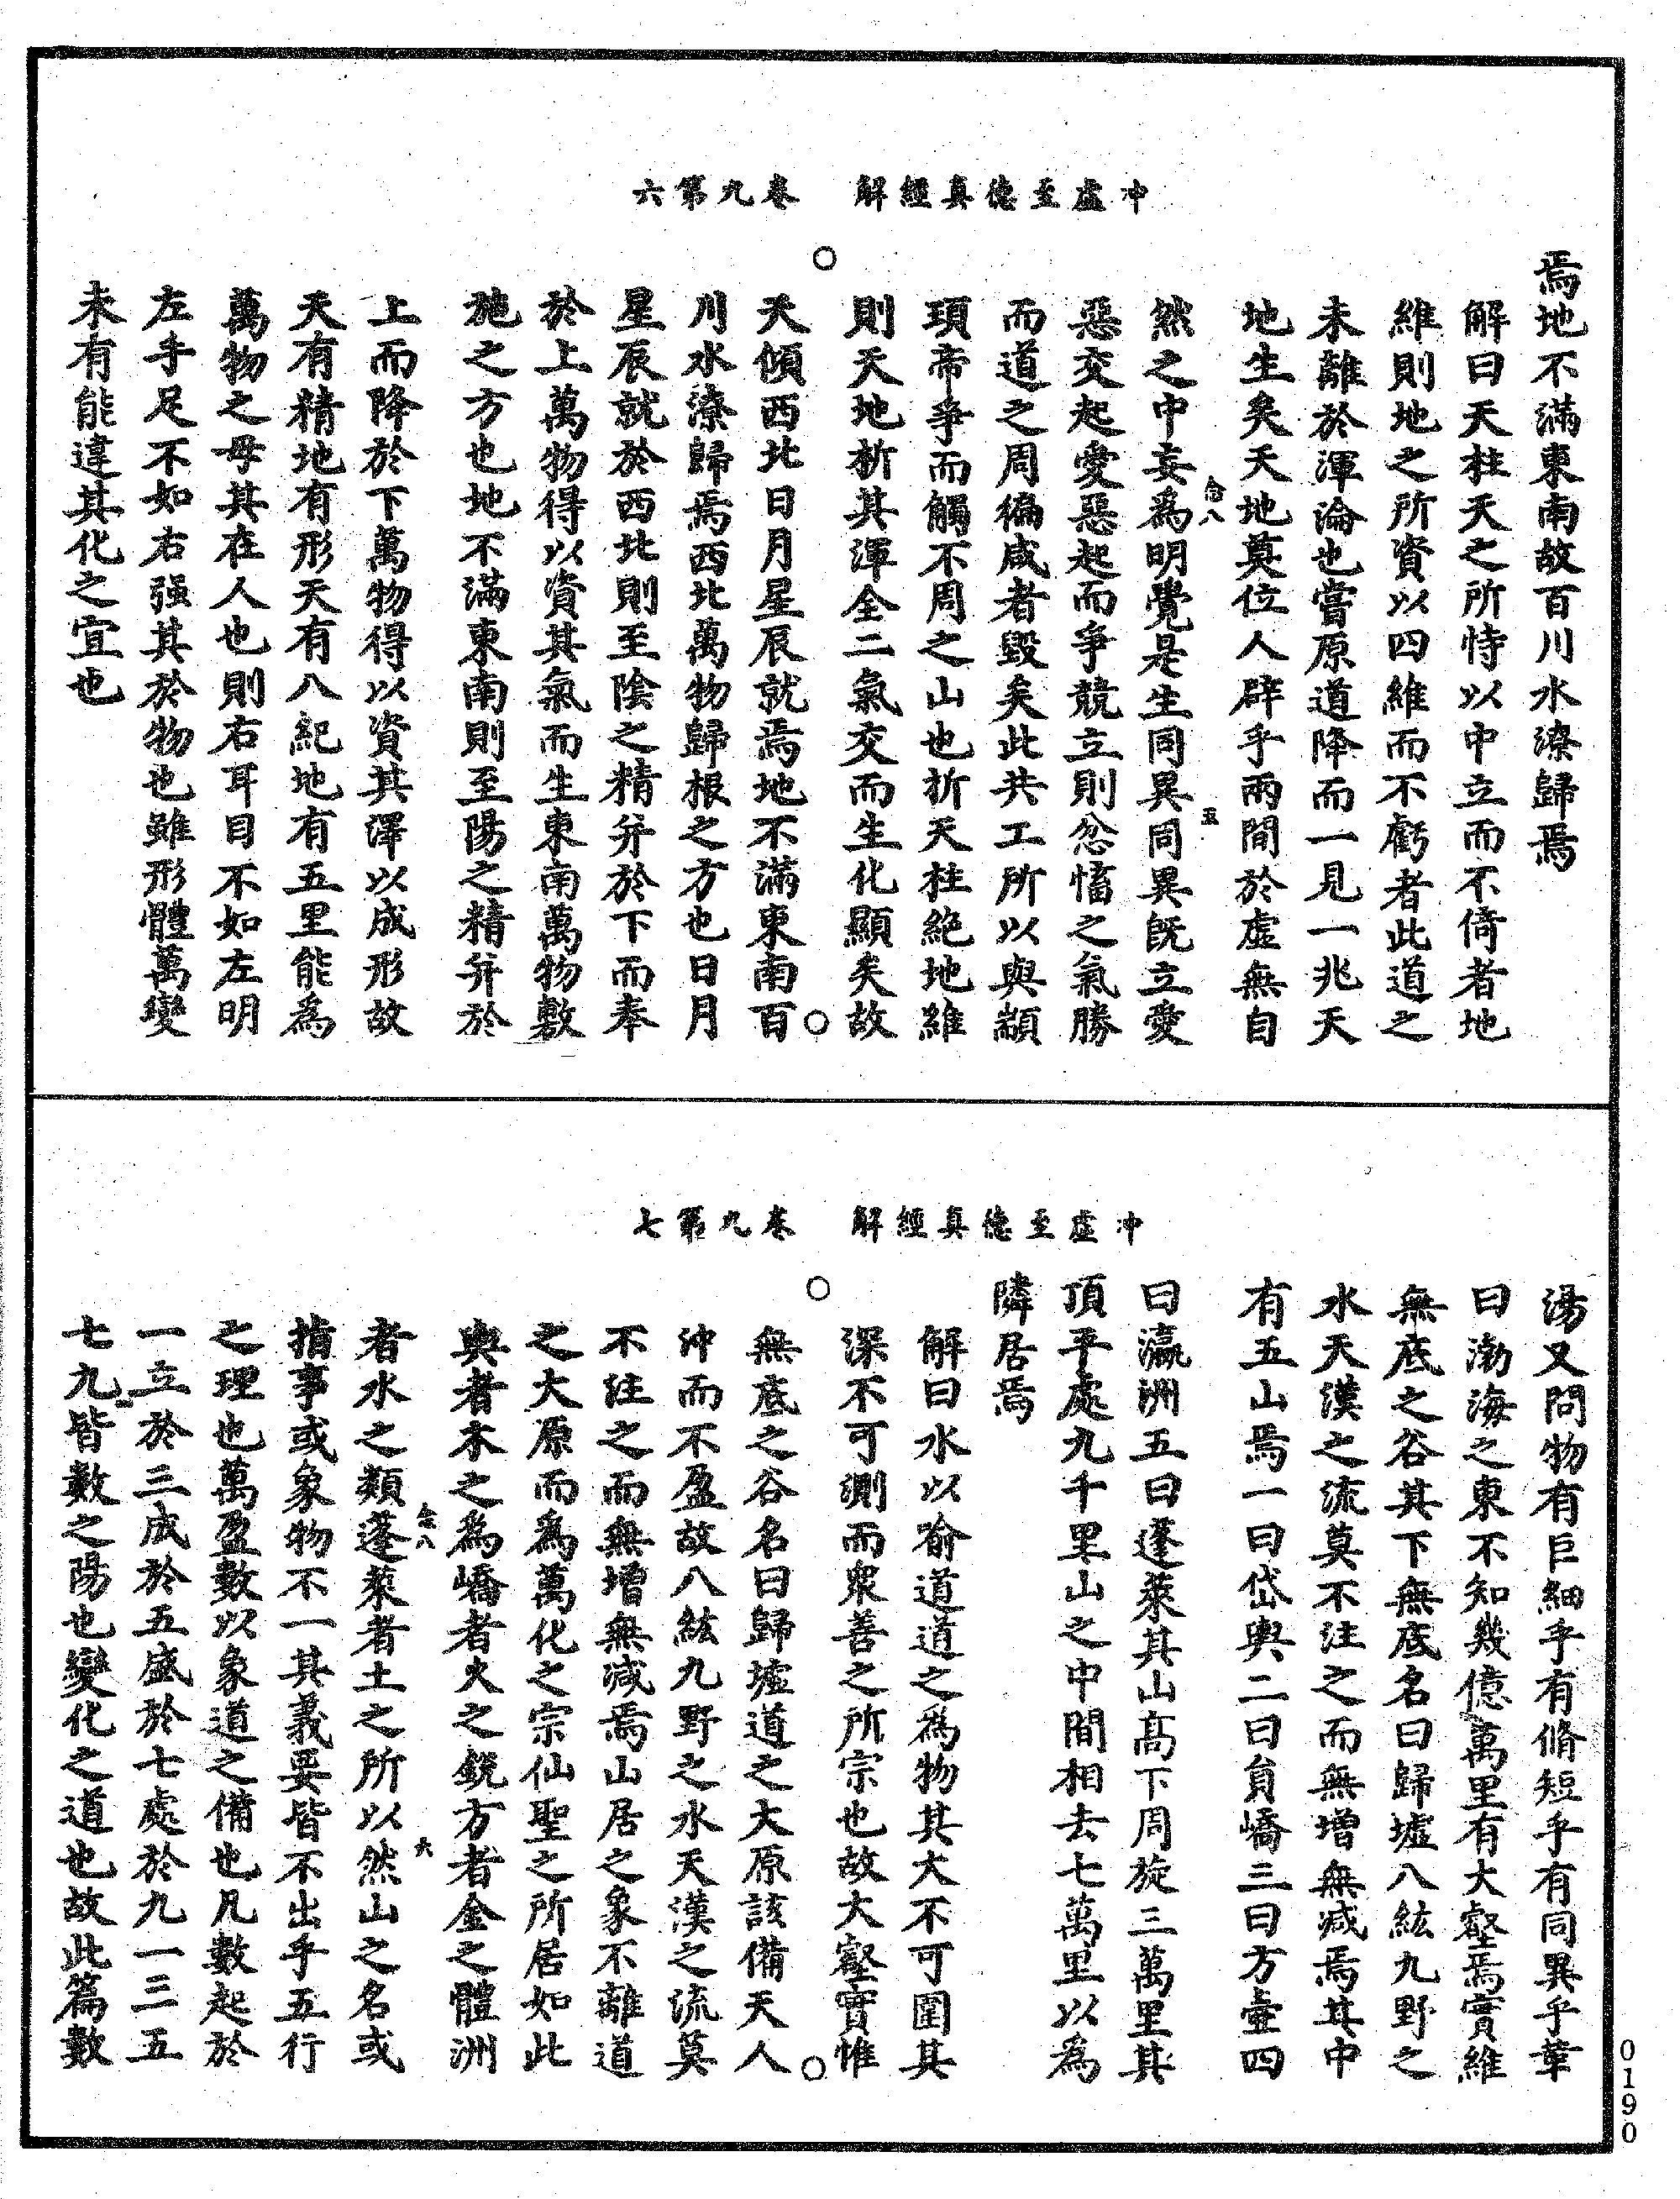 冲虛至德真經解　卷九第六
焉地不滿東南故百川水潦歸焉
解曰天柱天之所恃以中立而不倚者地
維則地之所資以四維而不虧者此道之
未離於渾淪也嘗原道降而一見一兆天
地生矣天地奠位人辟乎兩間於虛無自
然之中妄爲明覺是生同異同異旣立愛
惡交起愛惡起而爭競立則忿愊之氣勝
而道之周徧咸者毀矣此共工所以與顓
頊帝爭而觸不周之山也折天柱絕地維
則天地析其渾全二氣交而生化顯矣故
天傾西北日月星辰就焉地不滿東南百
川水潦歸焉西北萬物歸根之方也日月
星辰就於西北則至陰之精并於下而奉
於上萬物得以資其氣而生東南萬物敷
施之方也地不滿東南則至陽之精并於
上而降於下萬物得以資其澤以成形故
天有精地有形天有八紀地有五里能爲
萬物之母其在人也則右耳目不如左明
左手足不如右强其於物也雖形體萬變
未有能違其化之宜也
念八
五
冲虛至德真經解　卷九第七
湯又問物有巨細乎有脩短乎有同異乎革
曰渤海之東不知幾億萬里有大壑焉實維
無底之谷其下無底名曰歸墟八紘九野之
水天漢之流莫不注之而無增無減焉其中
有五山焉一曰岱輿二曰員嶠三曰方壺四
曰瀛洲五曰蓬萊其山高下周旋三萬里其
頂平處九千里山之中間相去七萬里以爲
隣居焉
解曰水以喻道道之爲物其大不可圍其
深不可測而衆善之所宗也故大壑實惟
無底之谷名曰歸墟道之大原該備天人
沖而不盈故八紘九野之水天漢之流莫
不注之而無增無減焉山居之象不離道
之大原而爲萬化之宗仙聖之所居如此
輿者木之爲嶠者火之銳方者金之體洲
者水之類蓬萊者土之所以然山之名或
指事或象物不一其義要皆不出乎五行
之理也萬盈數以象道之備也凡數起於
一立於三成於五盛於七處於九一三五
七九皆數之陽也變化之道也故此篇數
念八
六
0190